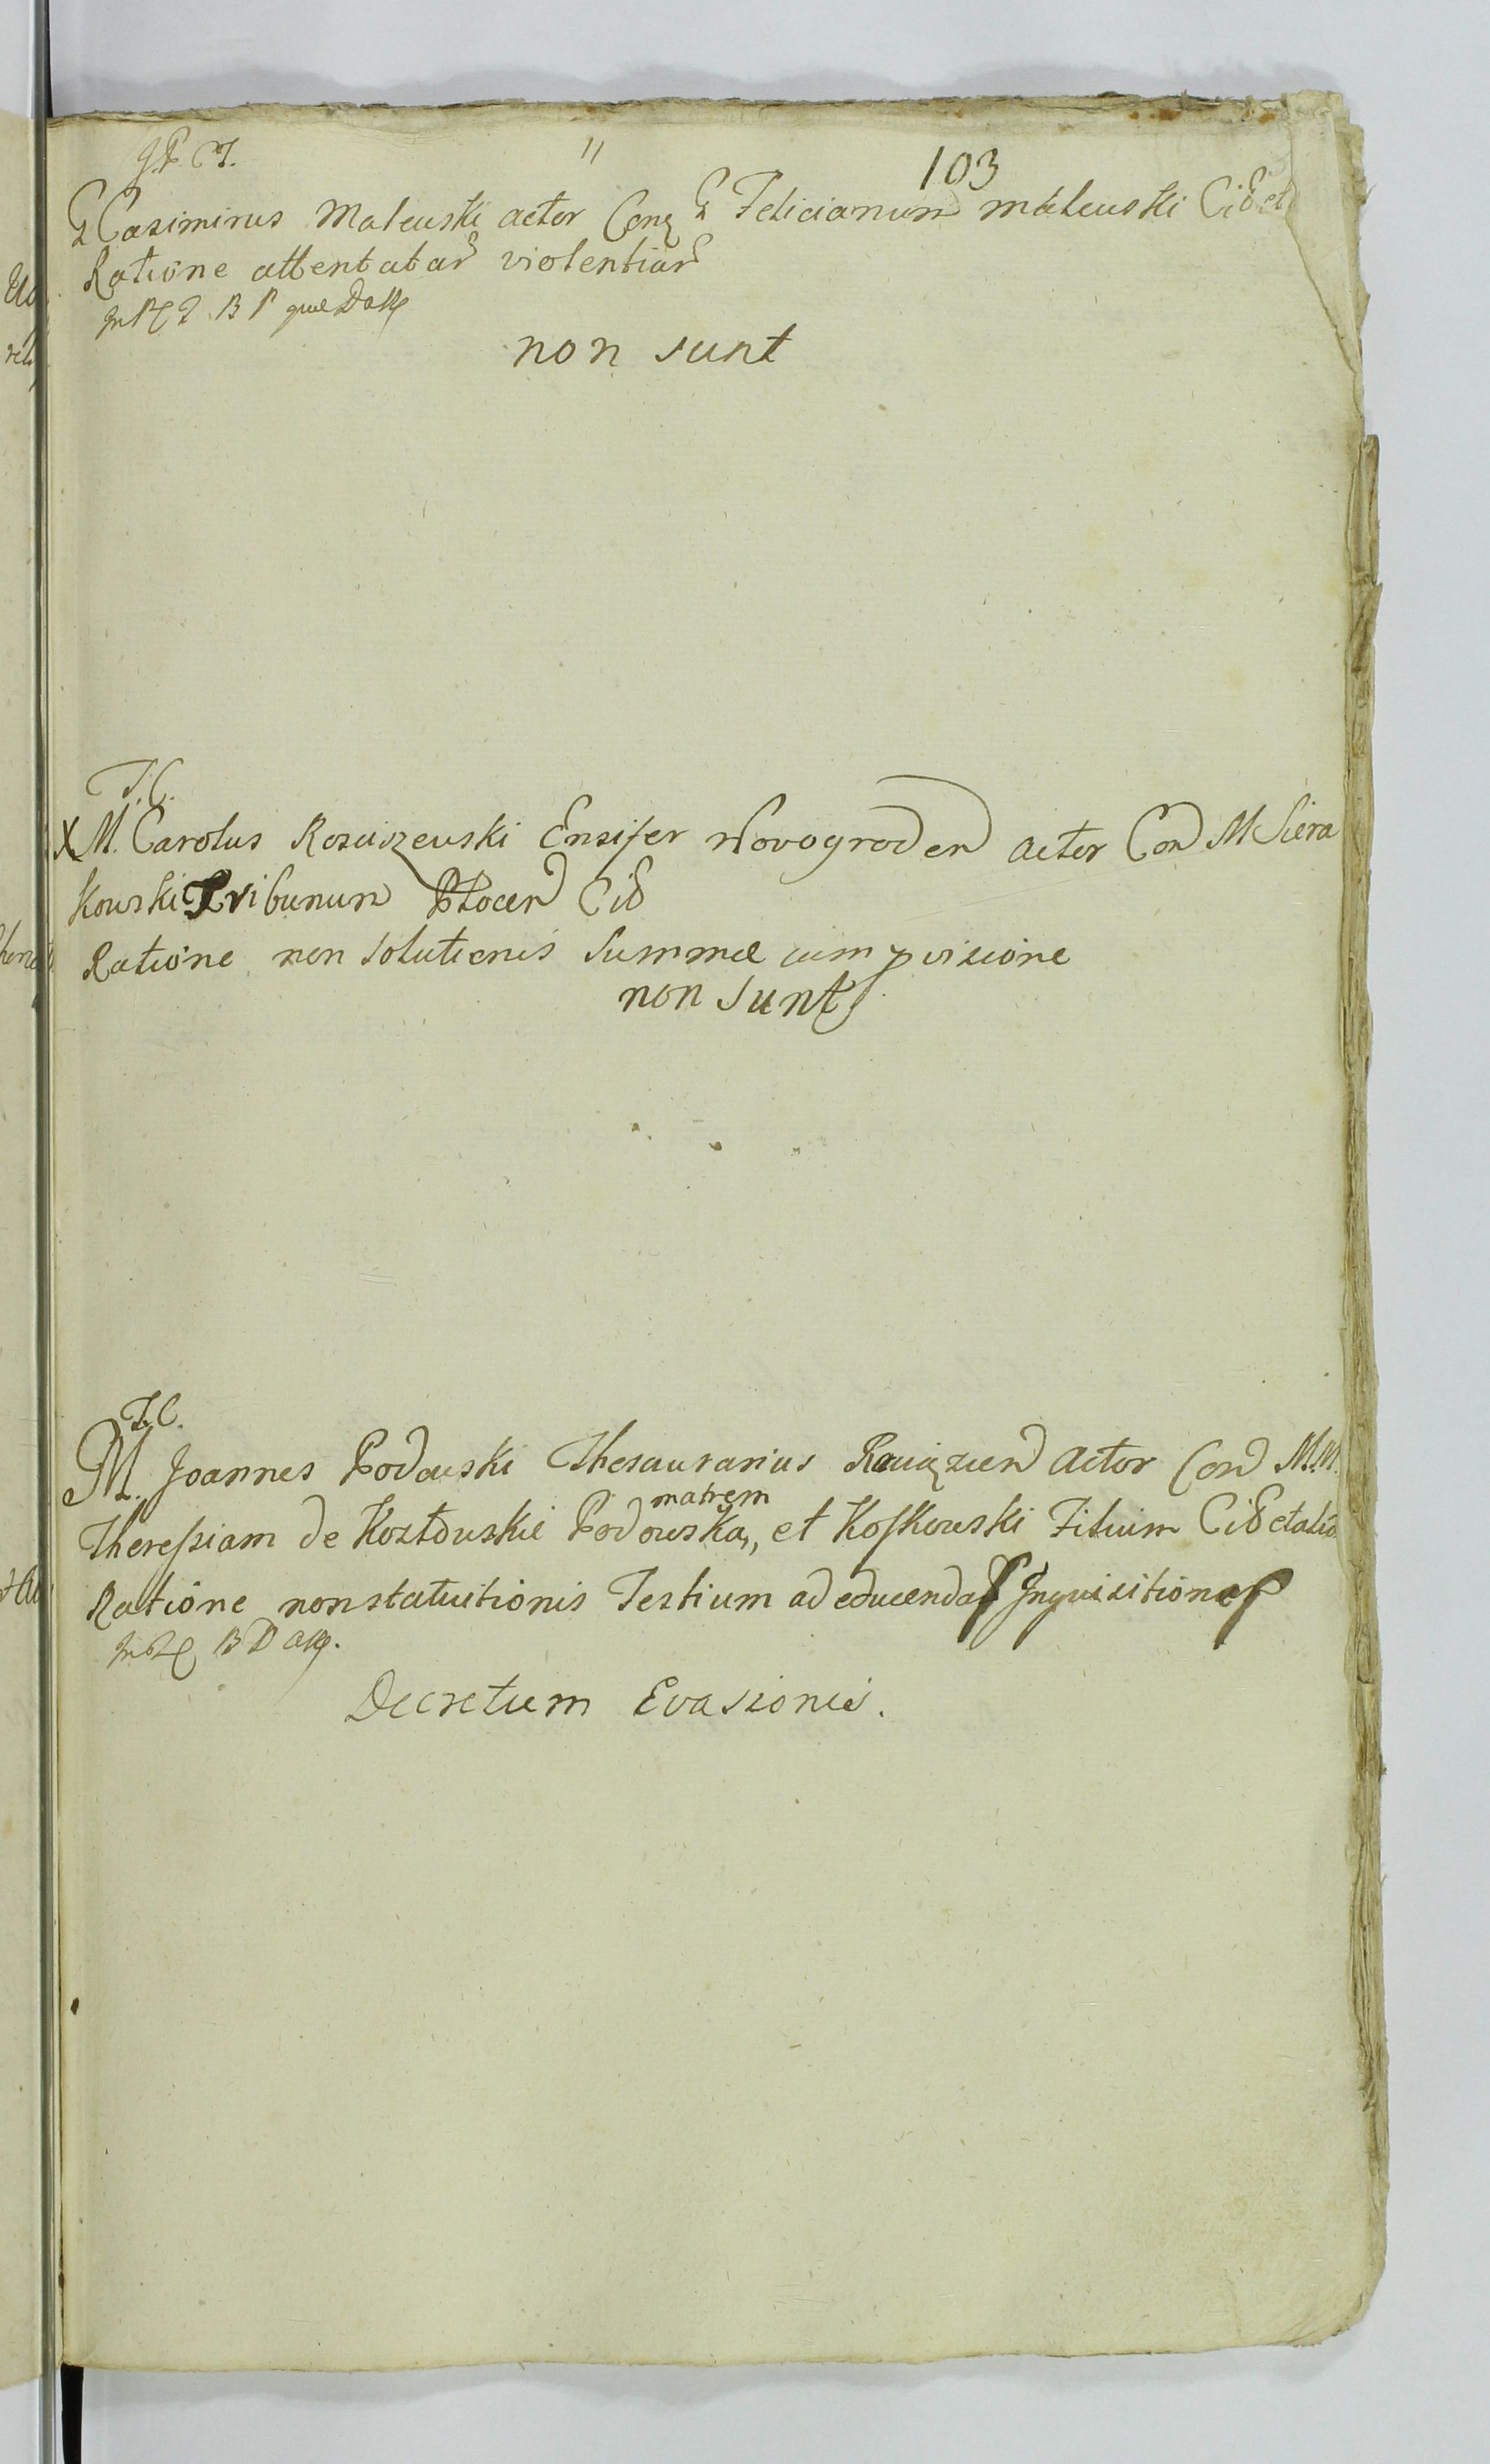 103
G Casimirus Maleuski actor Conq G Felicianum maleuski Cib et
Ratione attentatar violentiar
non sunt
T. C.
X M. Carolus Rosciszeuski Ensifer Novogroden actor Con M Siera
kouski Tribunum Plocen Cib
Ratione non solutionis Summae cum provisione
non sunt
T. C.
M. Joannes Podouski Thesaurarius Raciązien Actor Con M.M.
matrem
Theressiam de Kozłouskie Podouska, et Koskouski Filium Cib et alios
Ratione non statuitionis Testium ad educendas Inquisitiones
Decretum Evasionis.